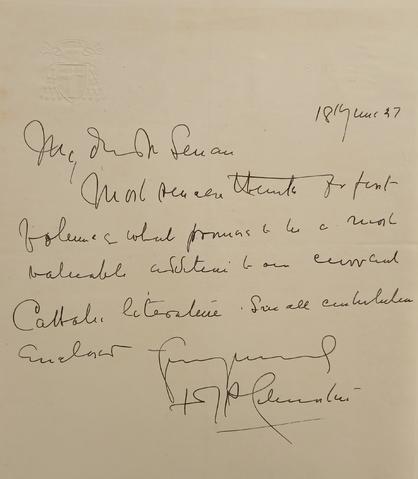 18 June 37
My dear Fr Senan
Most sincere thanks for first
volume of what promises to be a most
valuable addition to our current
Catholic literature. Small contribution
enclosed